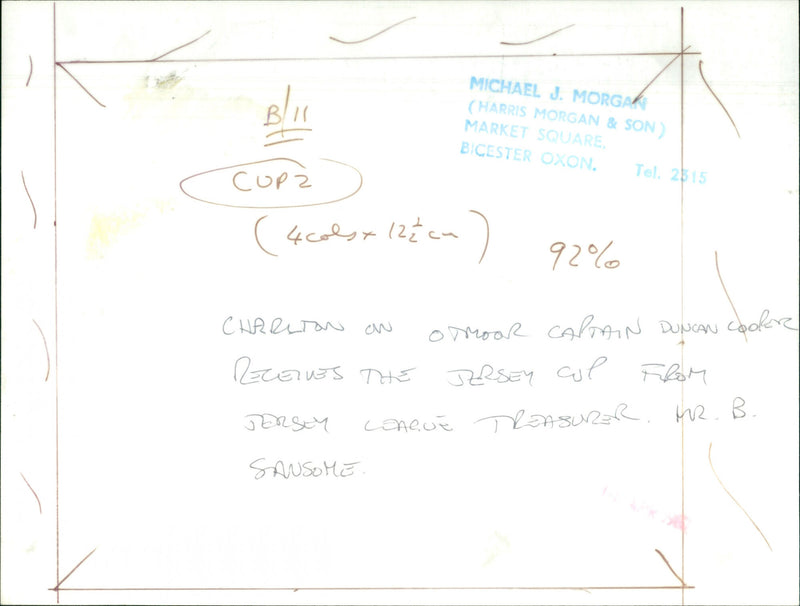 MICHAEL J. MORGAN
(HARRIS MORGAN & SON)
MARKET SQUARE,
BICESTER OXON. Tel. 2315
B/11
CUP 2
(4cols x 12½ cm)
92%
CHARLTON ON OTMOOR CAPTAIN DUNCAN COOPER
RECEIVES THE JERSEY CUP FROM
JERSEY LEAGUE TREASURER. MR. B.
SANSOME.